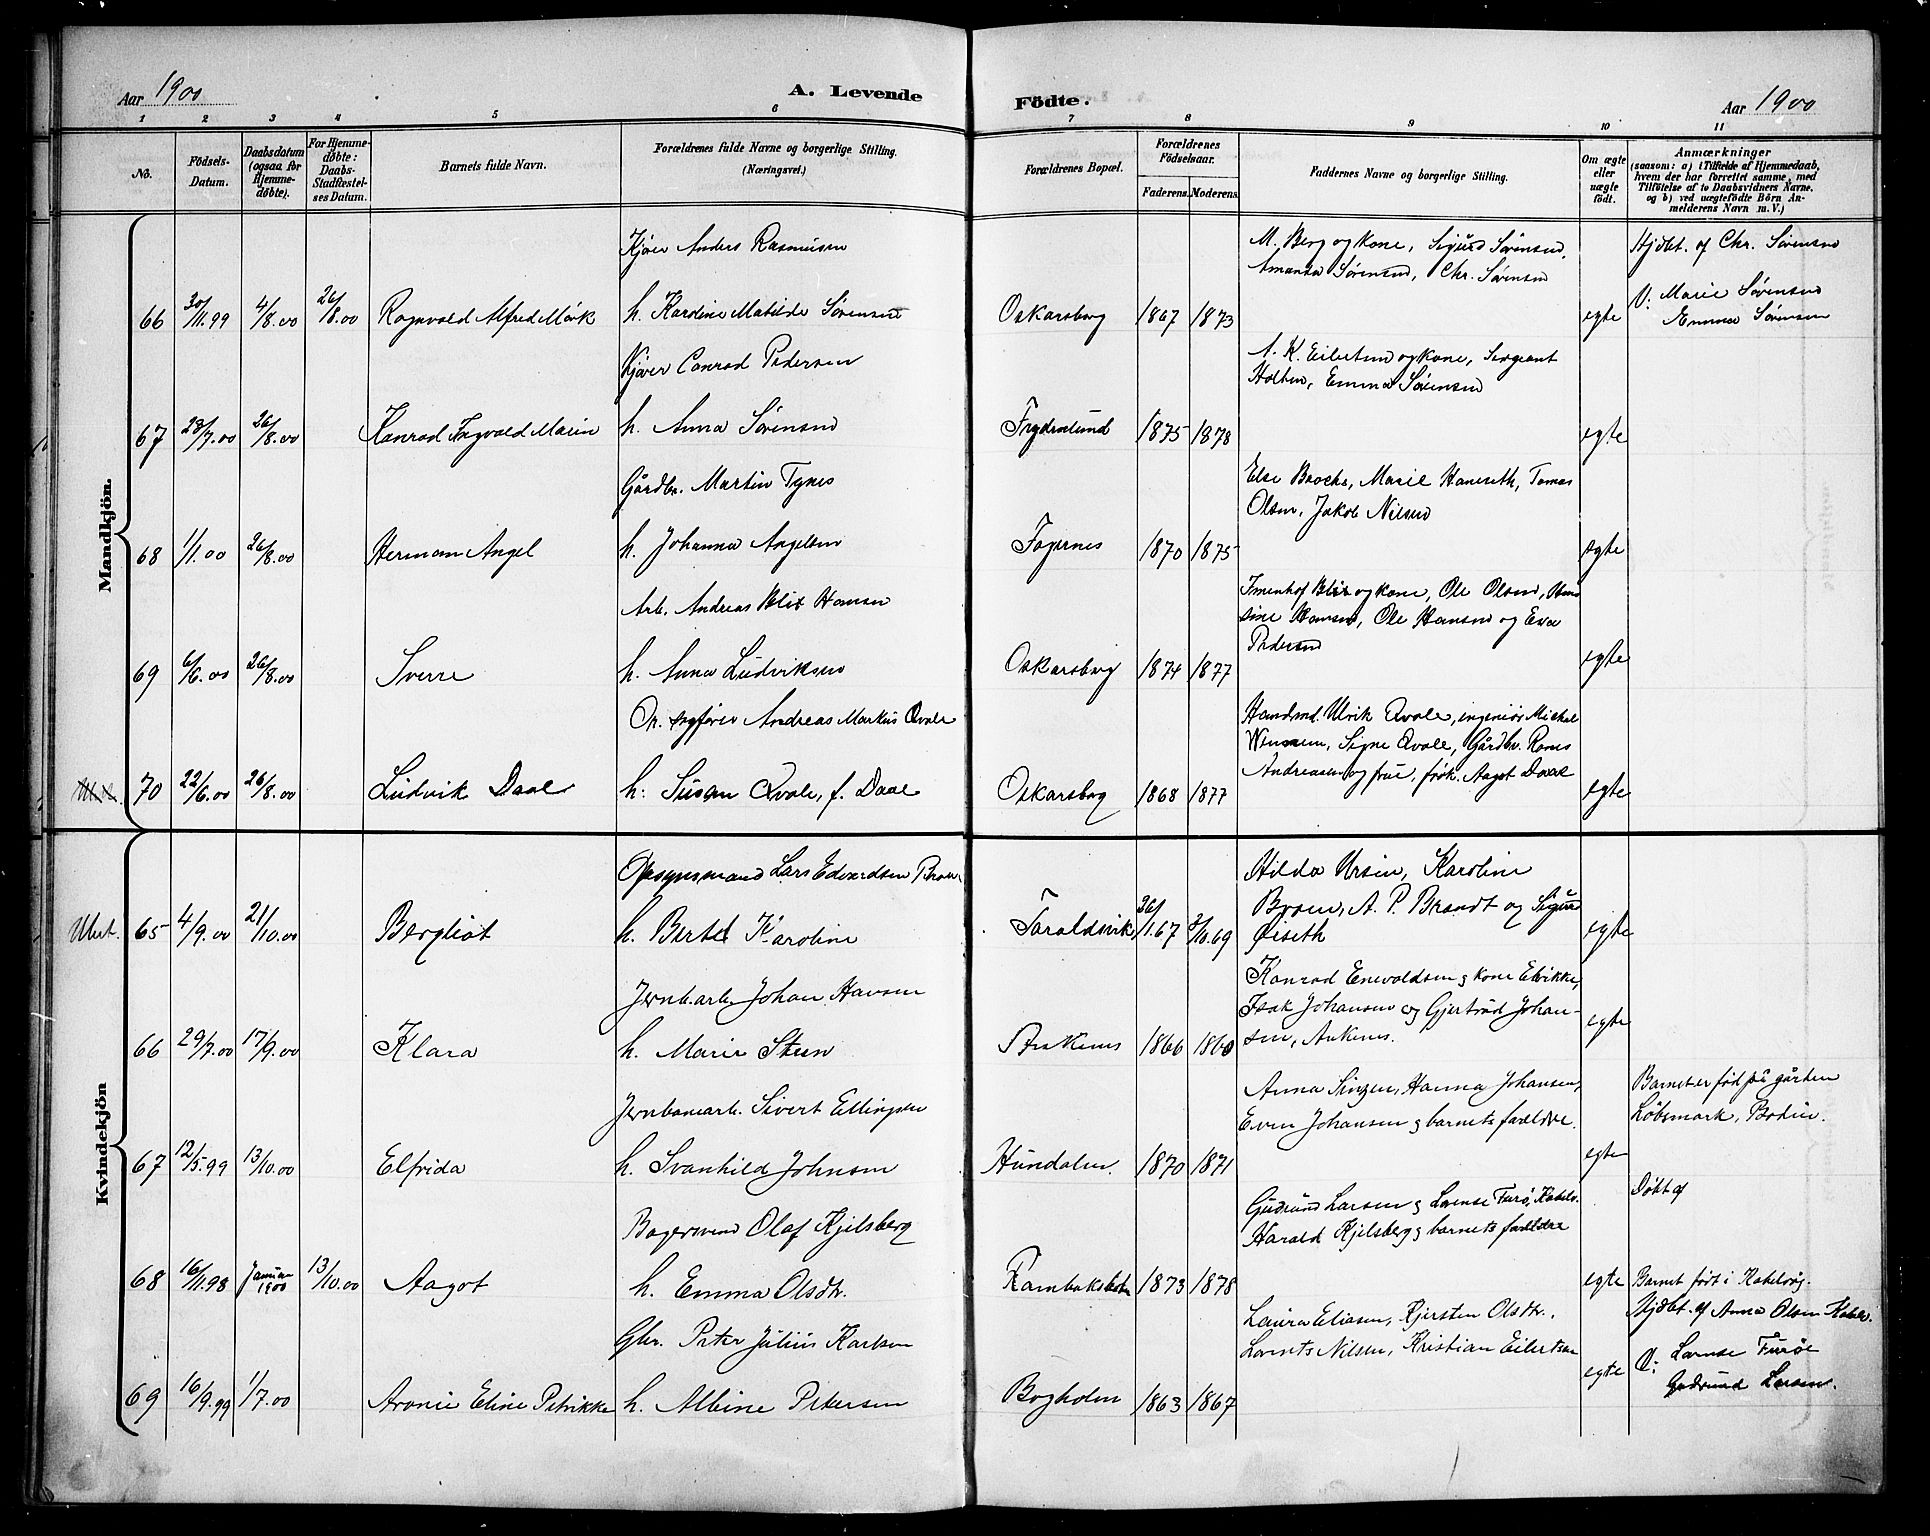 Aar 1900
A. Levende
Födte.
Aar 1900
1 2 3 4 5 6 7 8 9 10 11
No.
Födsels-Datum.
Daabsdatum (ogsaa for Hjemmedøbte).
For Hjemmedøbte: Daabs-Stadfæstelses Datum.
Barnets fulde Navn.
Forældrenes fulde Navne og borgerlige Stilling.
(Næringsvei.)
Forældrenes Bopæl.
Forældrenes Födselsaar.
Faderens. Moderens.
Faddernes Navne og borgerlige Stilling.
Om ægte eller uægte født.
Anmærkninger
(saasom: a) i Tilfælde af Hjemmedaab,
hvem der har forrettet samme, med
Tilföielse af to Daabsvidners Navne.
og b) ved uægtefödte Börn Anmelderens Navn m. V.)
Mandkjön.
66 30/11.99 4/8.00 26/8.00 Ragnvald Alfred Mörk
Kjører Anders Rasmussen
h. Karoline Matilde Sørensen
Oskarsborg 1867 1873
M. Berg og kone, Sigurd Sørensen,
Amanda Sørensen, Chr. Sørensen
egte
Hjdbt. af Chr. Sørensen
V: Marie Sørensen
Emma Sørensen
67 28/7.00 26/8.00 Konrad Ingvald Marin
Kjører Conrad Pedersen
h. Anna Sørensen
Frydenlund 1875 1878
A. K. Eilertsen og kone, Sergeant
Holten, Emma Sørensen
egte
68 1/1.00 26/8.00 Herman Angel
Gårdbr. Martin Tynes
h. Johanna Angelsen
Fagernes 1870 1875
Else Brochs, Marie Hanseth, Tomas
Olsen, Jakob Nilsen
egte
69 6/6.00 26/8.00 Sverre
Arb. Andreas Blix Hansen
h. Anna Ludviksen
Oskarsborg 1874 1877
Blix og kone, Ole Olsen,
Hansen, Ole Hansen og Eva
Pedersen
egte
70 22/6.00 26/8.00 Ludvik Daae
Andreas Markus Qvale
h: Susan Qvale, f. Daae
Oskarsborg 1868 1877
Handsmd. Ulrik Qvale, ingeniør Mickal
Signe Qvale, Gårdbr.
Andreasen og frue, frøk. Aagot Daae
egte
Kvindekjön
Uut. 65 4/9.00 21/10.00 Bergliot
Opsynsmand Lars Edvardsen
h. Berte Karoline
Taraldsvik 26/1.67 2/10.69
Hilda Ursin, Karoline
A. P. Brandt og Sigurd
Øiseth
egte
66 29/7.00 17/9.00 Klara
Jernb.arb. Johan Hansen
h. Marie Steen
Ankenes 1866 1860
Konrad Enevoldsen & kone Elvikke,
Isak Johansen og Gjertrud Johansen, Ankenes.
egte
67 12/5.99 13/10.00 Elfrida
Jernbanearb. Sivert Ellingsen
h. Svanhild Johnsen
Hundalen 1870 1871
Anna Hanna Johansen,
Even Johansen & barnets forældre.
egte
Barnet er født på gården
Løbsmark, Bodin.
68 16/11.98 Januar 1900 13/10.00 Aagot
Bagersvend Olaf Kjelsberg
h. Emma Olsdtr.
Rombaksbotn 1873 1878
Gudrund Larsen & Lorense Furø, Kabelv.
Harald Kjelsberg & barnets forældre
egte
Døbt af
Barnet født i Kabelvåg.
Hjdbt. af Anna Olsen Kabelv.
V: Lorense Furøe
Gudrund Larsen.
69 16/9.99 1/7.00 Aronie Eline Petrikke
Gbr. Peter Julius Karlsen
h. Albine Petersen
Bogholm 1863 1867
Laura Eliasen, Kjersten Olsdtr.
Lorents Nilsen, Kristian Eilertsen
egte